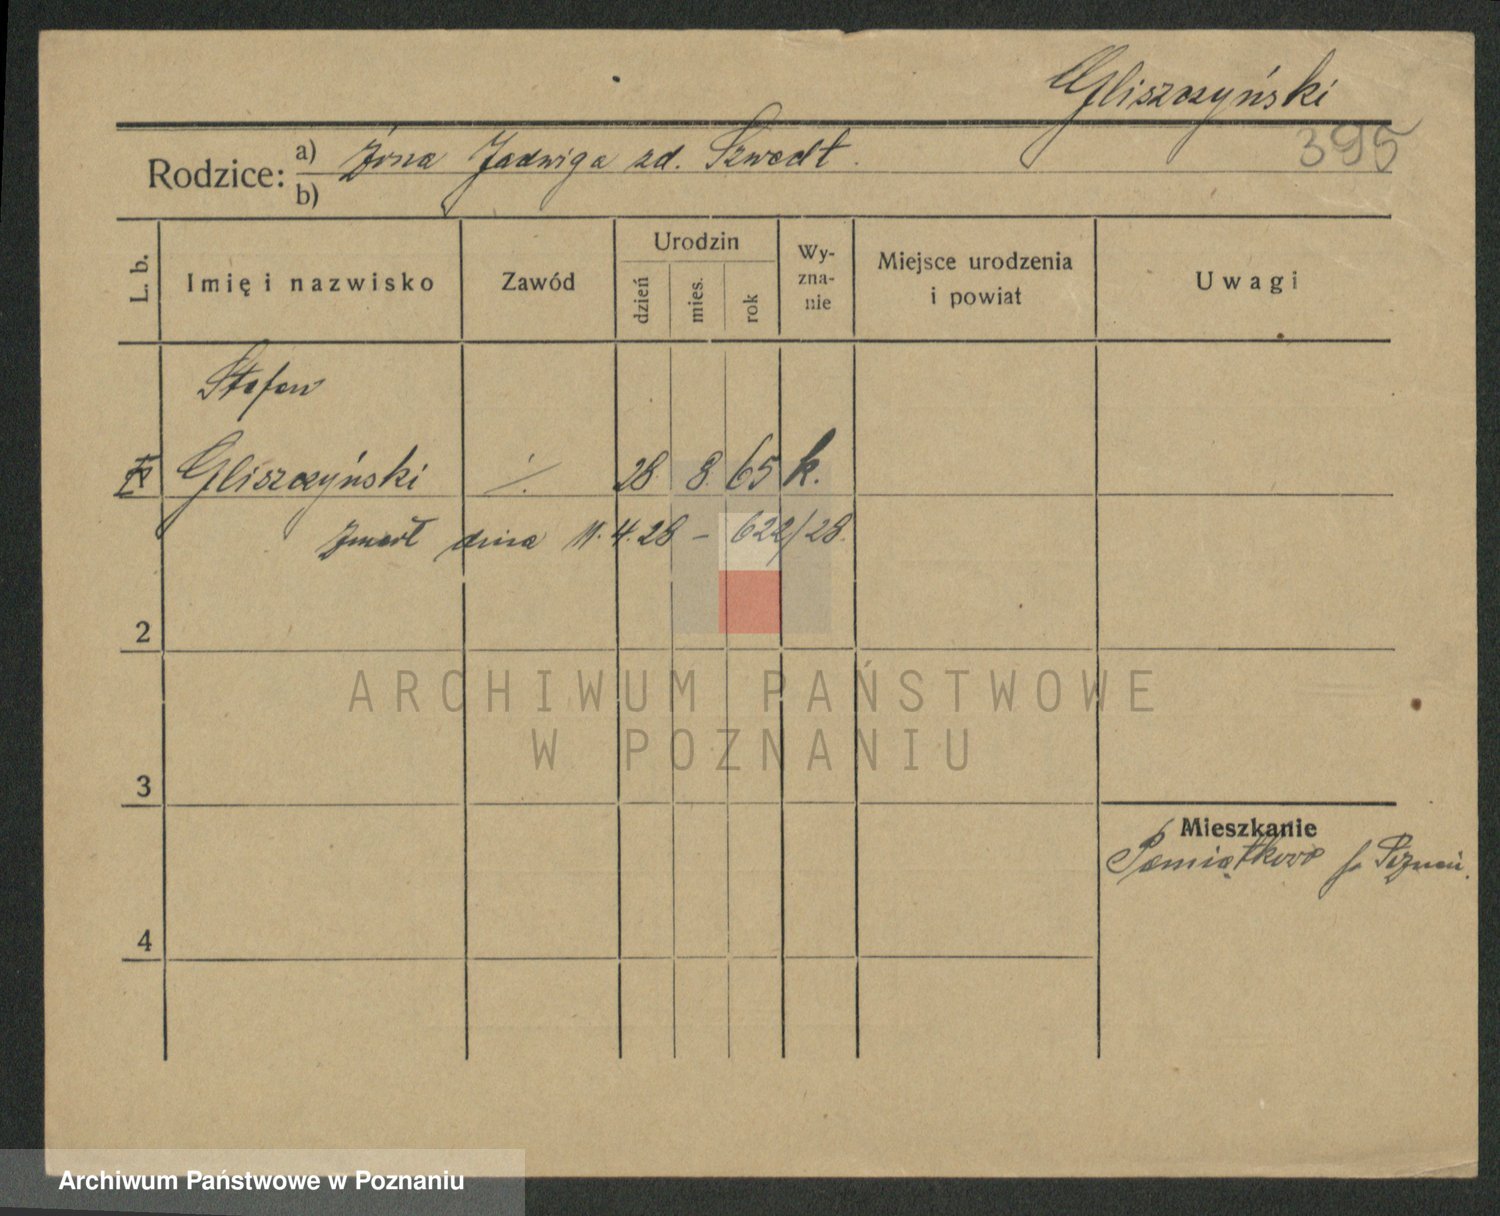 Gliszczyński
395
Rodzice: a) Żona Jadwiga zd. Szwedt.
b)
L. b.
Imię i nazwisko
Zawód
Urodzin
dzień
mies.
rok
Wy-
zna-
nie
Miejsce urodzenia
i powiat
Uwagi
Stefan
Gliszczyński ./. 28. 8. 65 k.
Zmarł dnia 11.4.28 – 622/28.
2
3
4
Mieszkanie
Pamiątkowo p. Poznań.
ARCHIWUM PAŃSTWOWE
W POZNANIU
Archiwum Państwowe w Poznaniu